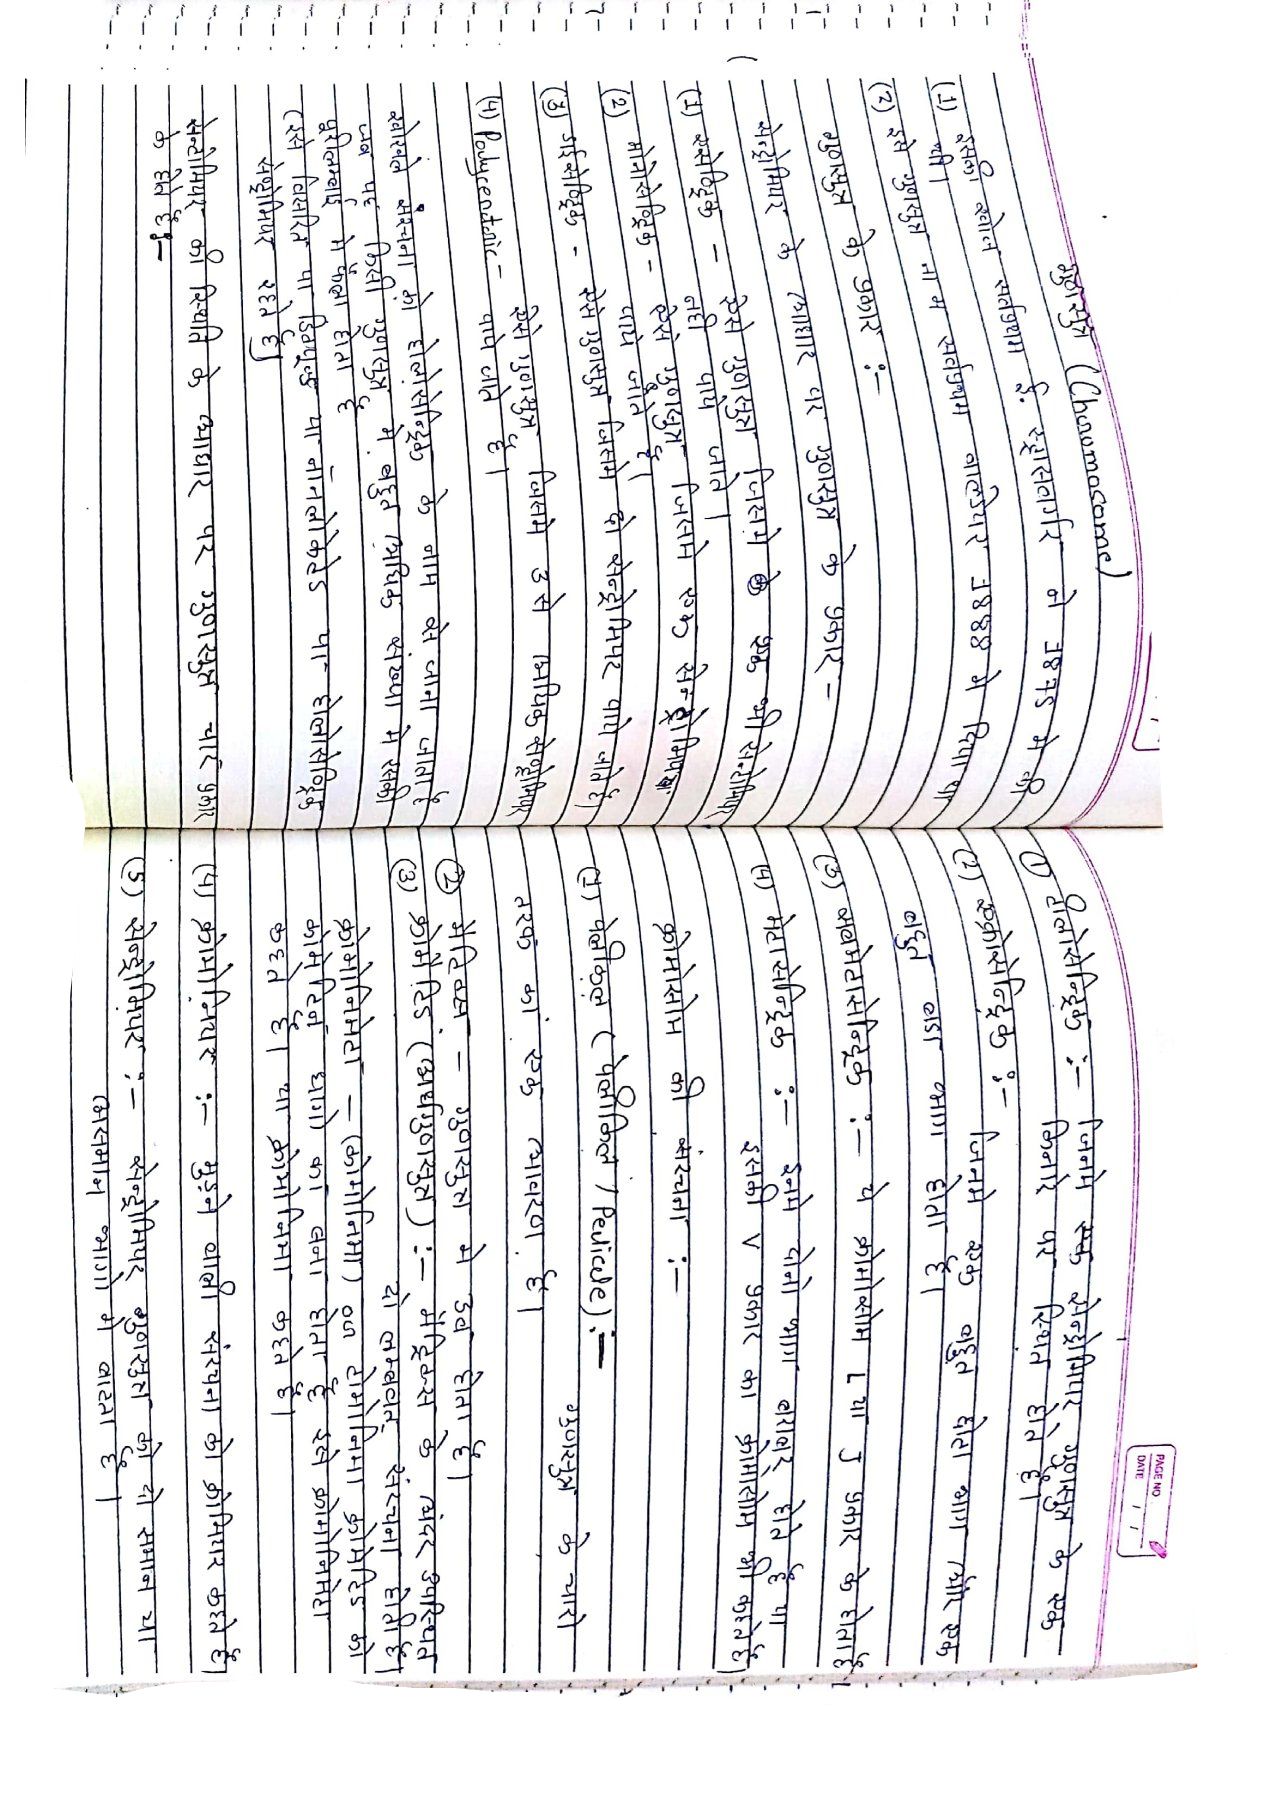 गुणसुत्र (Choumosome)
(1) इसकी खोज सर्वप्रथम है. स्ट्रासबर्गर ने 1875 मे की
थी।
(2) इसे गुणसुत्र नाम सर्वप्रथम वाल्डेयर 1888 मे दिया था
गुणसुत्र के प्रकार :-
सेन्ट्रोमियर के आधार पर गुणसुत्र के प्रकार -
(1) एसेंट्रिक - ऐसे गुणसुत्र जिसमे एक भी सेन्ट्रोमियर
नही पाये जाते।
(2) मोनोसेन्ट्रिक - ऐसे गुणसुत्र जिसमे एक सेन्ट्रोमियर
पाये जाते है।
(3) डाईसेन्ट्रिक - ऐसे गुणसुत्र जिसमे दो सेन्ट्रोमियर पाये जाते है।
(4) Polycentric - ऐसे गुणसुत्र जिसमे उसे अधिक सेन्ट्रोमियर
पाये जाते है।
संरचना को होलोसेन्ट्रिक के नाम से जाना जाता है
जब यह किसी गुणसुत्र मे बहुत अधिक संख्या मे इसकी
पूरी लम्बाई मे फैला होता है -
(इसे विसरित या डिफ्यूज्ड या नानलोकेटेड या होलोसेन्ट्रिक
सेन्ट्रोमियर रहते है।
सेन्ट्रोमियर की स्थिति के आधार पर गुणसुत्र चार प्रकार
के होते है:-
PAGE NO
DATE / /
(1) टीलोसेन्ट्रिक :- जिनमे एक सेन्ट्रोमियर गुणसुत्र के एक
किनारे पर स्थित होते है।
(2) एक्रोसेन्ट्रिक :-
जिनमे एक बहुत छोटा भाग और एक
बहुत बडा भाग होता है।
(3) सबमेटासेन्ट्रिक :- ये क्रोमोसोम L या J प्रकार के होता है।
(4) मेटासेन्ट्रिक :- इनमे दोनो भाग बराबर होते है या
इसकी V प्रकार का क्रोमोसोम भी कहते है।
क्रोमोसोम की संरचना :-
(1) पेलीकुल (पेलीकिल / Pelicle) :-
गुणसुत्र के चारो
तरफ का एक आवरण है।
(2) मेट्रिक्स - गुणसुत्र मे द्रव होता है।
(3) क्रोमेटिड (अर्धगुणसुत्र) :- मेट्रिक्स के अंदर उपस्थित
दो लम्बवत संरचना होती है।
क्रोमोनिमेटा - (क्रोमोनिमा) क्रोमेटिड को
क्रोमेटिन धागे का बना होता है इसे क्रोमोनिमेटा
कहते है। या क्रोमोनिमा कहते है।
(4) क्रोमोमियर :- मुड़ने वाली संरचना को क्रोमियर कहते है।
(5) सेन्ट्रोमियर :- सेन्ट्रोमियर गुणसुत्र को दो समान या
असमान भागो मे बाटता है।